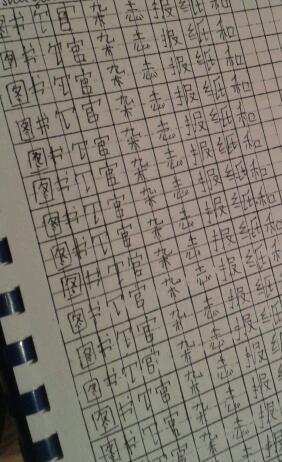 图书馆杂志报纸和
图书馆杂志报纸和
图书馆杂志报纸和
图书馆杂志报纸和
图书馆杂志报纸和
图书馆杂志报纸和
图书馆杂志报纸和
图书馆杂志报纸和
图书馆杂志报纸和
图书馆杂志报纸
图书馆杂志报纸
图书馆杂志报纸
图书馆杂志报
图书馆杂志